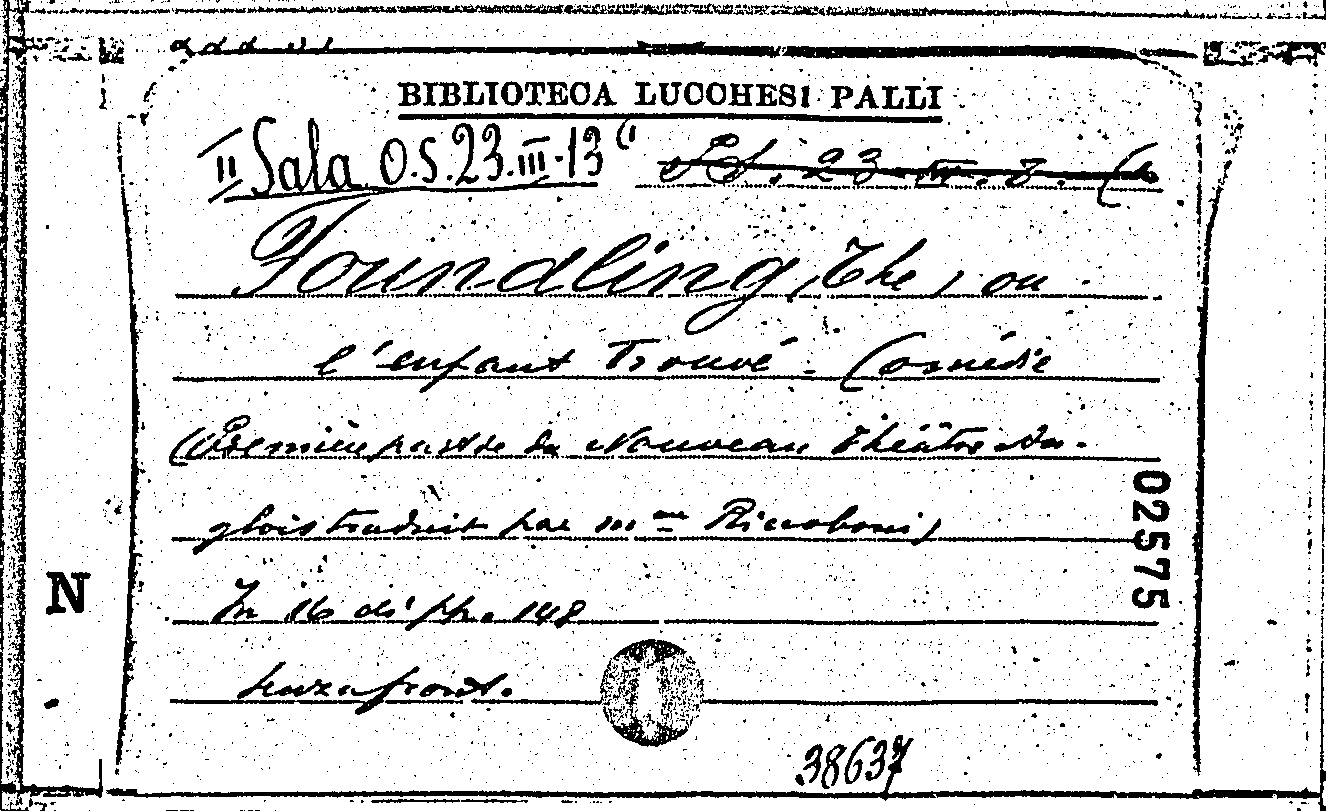 BIBLIOTECA LUCCHESI PALLI
II Sala O.S.23.III.13(1 
Foundling, (The) ou
l'enfant trouvé. Comédie
(Première partie du Nouveau Théâtre An-
glois traduit par Mme Riccoboni)
In 16 di pp. 148
senza front.
02575
N
38637